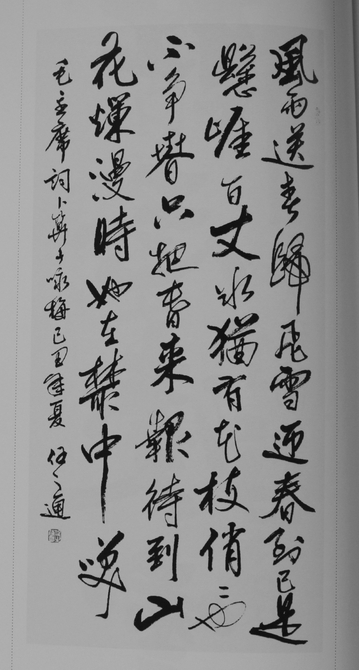 風雨送春歸飛雪迎春到已是
懸崖百丈冰猶有花枝俏〻也
不争春只把春来報待到山
花爛漫時她在叢中笑
毛主席詞卜算子咏梅己丑年夏 通